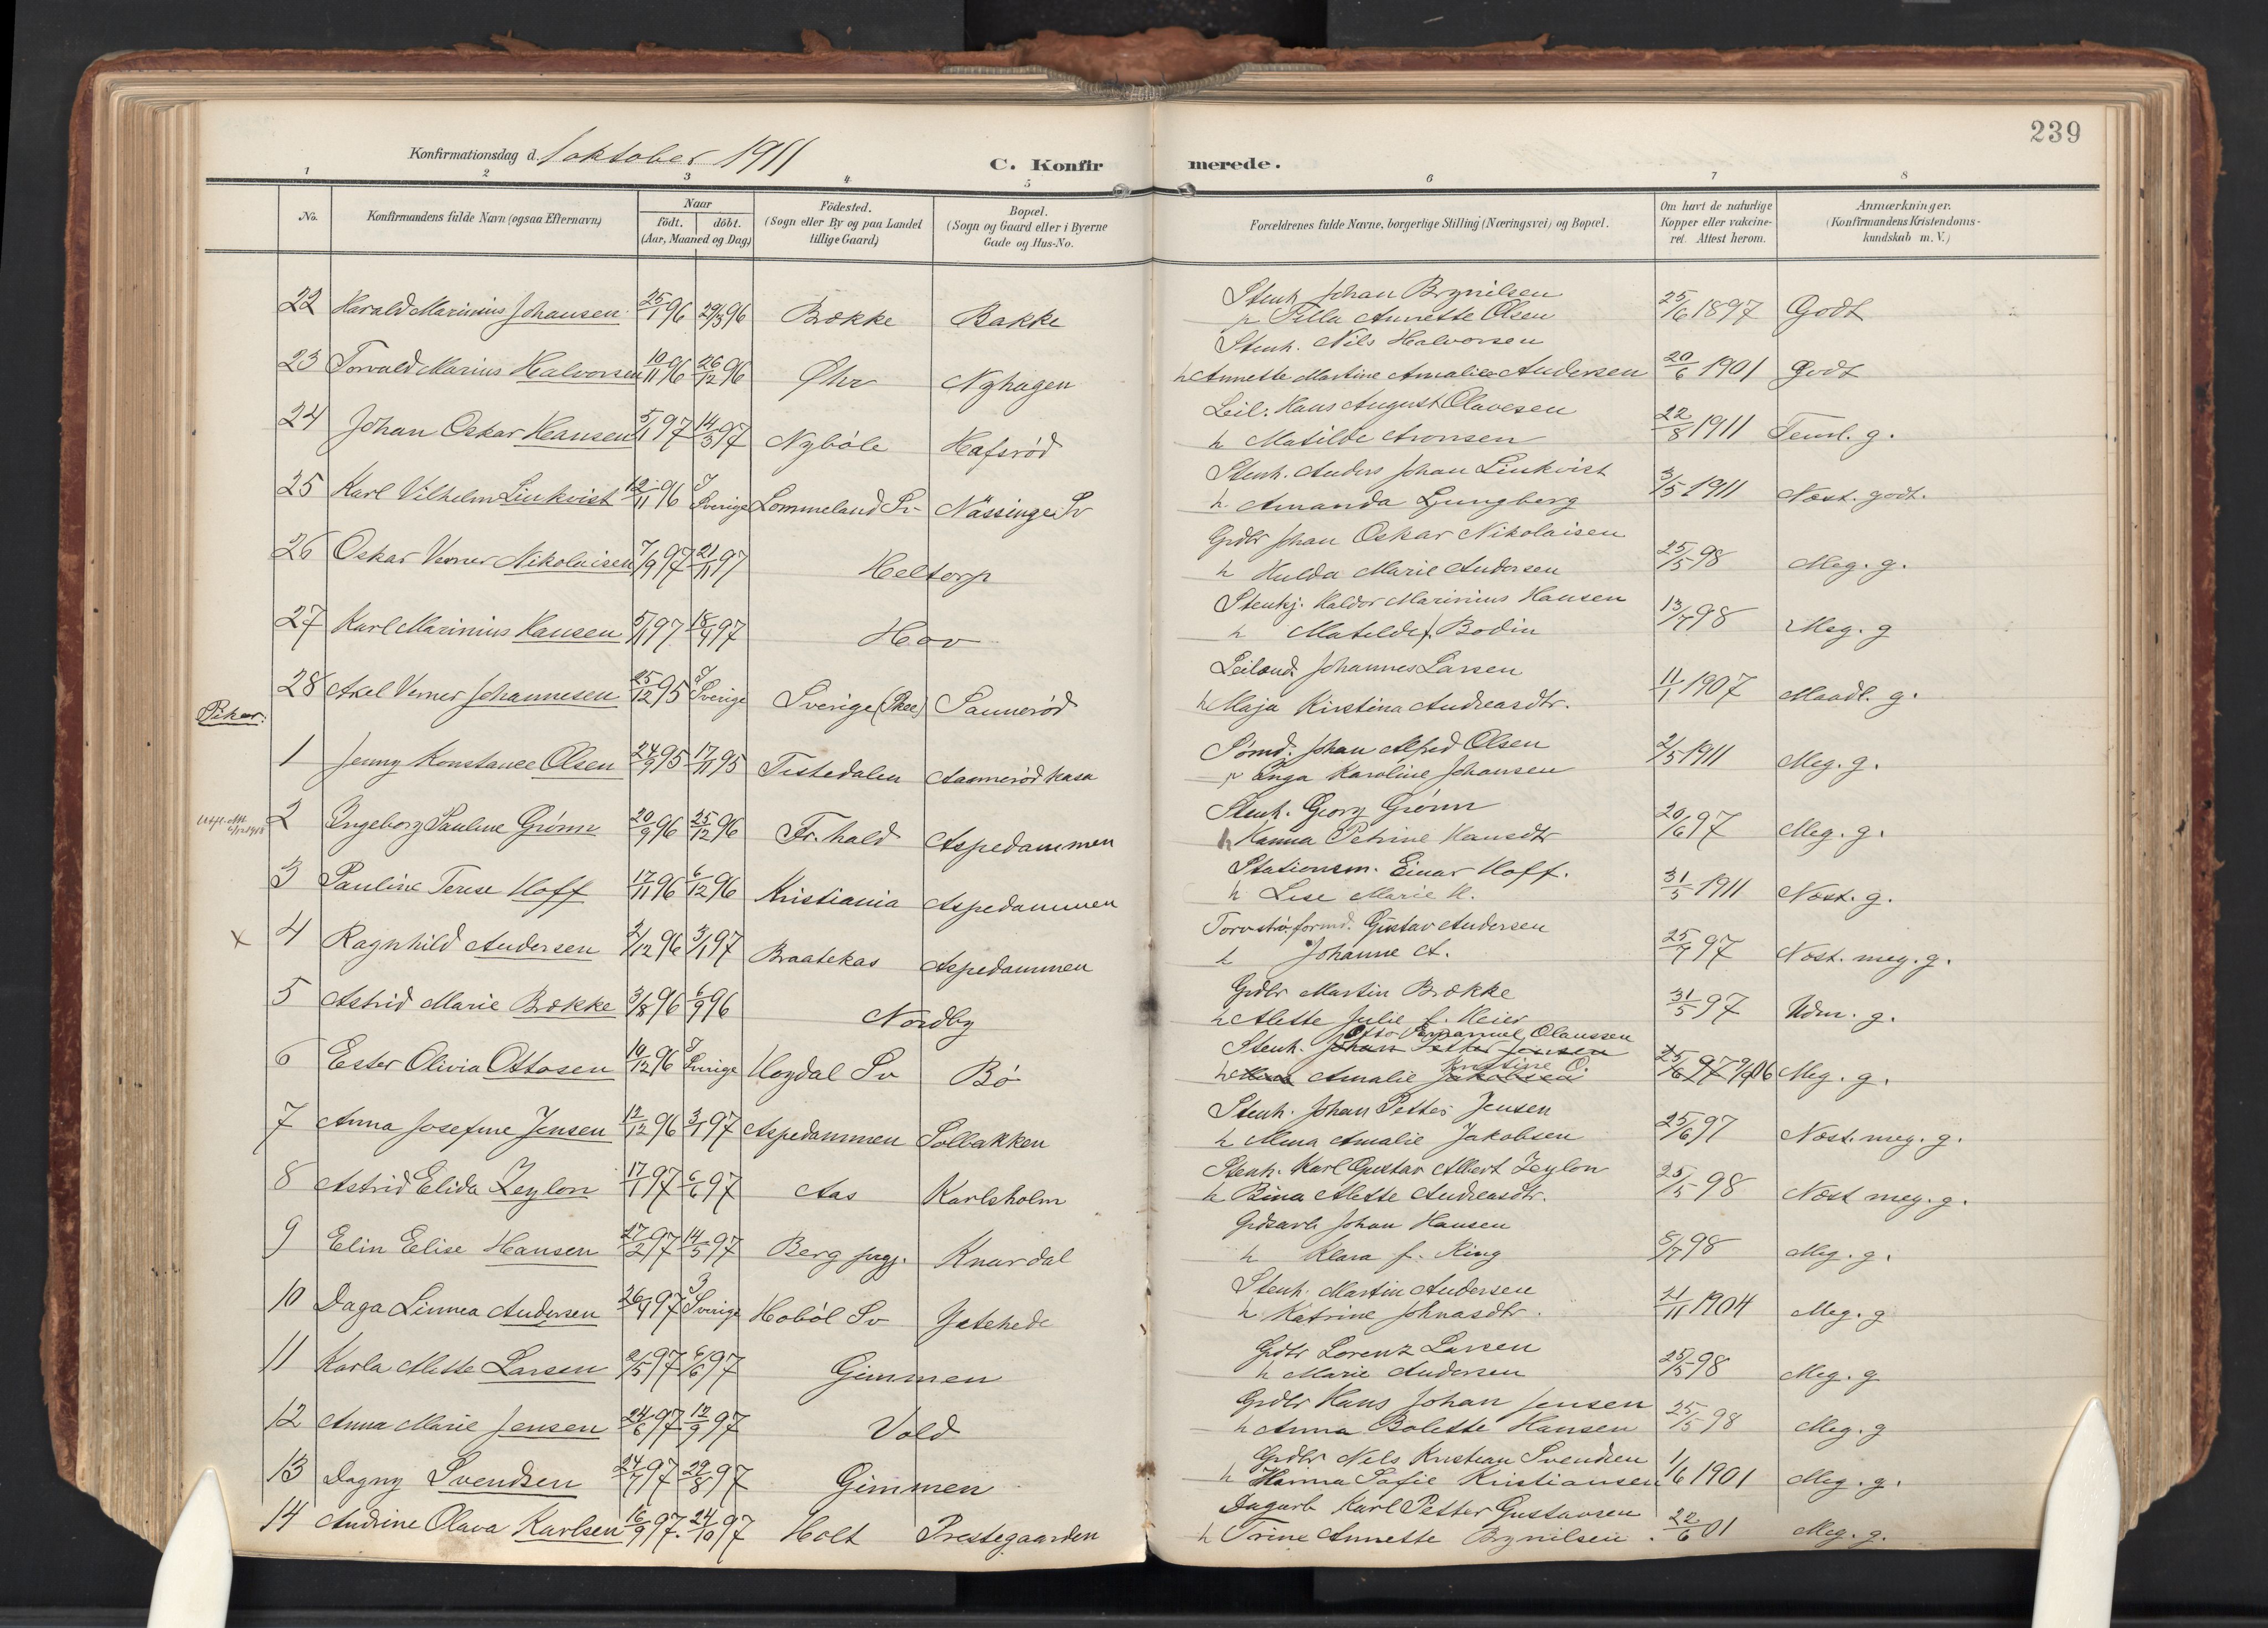 239
Konfirmationsdag d. 1 oktober 1911
C. Konfirmerede.
1 2 3 4 5 6 7 8
No. Konfirmandens fulde Navn (ogsaa Efternavn) Naar födt. döbt. (Aar, Maaned og Dag) Födested. (Sogn eller By og paa Landet tillige Gaard) Bopæl. (Sogn og Gaard eller i Byerne Gade og Hus-No. Forældrenes fulde Navne, borgerlige Stilling (Næringsvei) og Bopæl. Om havt de naturlige Kopper eller vakcineret. Attest herom. Anmærkninger. (Konfirmandens Kristendomskundskab m. V.)
22 Harald Marinius Johansen 25/1 96 29/3 96 Brække Bakke Stenh. Johan Brynilsen 25/6 1897 Godt
Annette Olsen
23 Torvald Marius Halvorsen 10/11 96 26/12 96 Øhr Nyhagen Stenh. Nils Halvorsen 20/6 1901 Godt
h Annette Martine Amalie Andersen
24 Johan Oskar Hansen 5/1 97 14/3 97 Nyböle Hafsröd Leil. Hans August Olavesen 22/8 1911 Teml. g.
h Matilde Aronsen
25 Karl Vilhelm Linkvist 12/11 96 I Sverige Lommeland Sv. Nässinge Sv Stenh. Anders Johan Linkvist 3/5 1911 Næst. godt.
h. Amanda Ljungberg
26 Oskar Verner Nikolaisen 7/9 97 21/11 97 Heltorp Grdbr Johan Oskar Nikolaisen 25/5 98 Meg. g.
h Hulda Marie Andersen
27 Karl Marinius Hansen 5/11 97 18/4 97 Hov Stenhj. Haldor Marinius Hansen 13/7 98 Meg. g
h Matilde f. Bodin
28 Axel Verner Johannesen 25/12 95 I Sverige Sverige (Skee) Sannerød Leilænd. Johannes Larsen 11/1 1907 Maadl. g.
h Maja Kirstina Andreasdtr.
Piker:
1 Jenny Konstance Olsen 24/9 95 17/11 95 Tistedalen Aamerød kasa Sømd. Johan Alfred Olsen 2/5 1911 Meg. g.
Inga Karoline Johansen
2 Ingeborg Pauline Grönn 20/9 96 25/12 96 Fr.hald Aspedammen Stenh. Georg Grönn 20/6 97 Meg. g.
h Hanna Petrine Hansdtr
3 Pauline Terese Hoff 17/11 96 6/12 96 Kristiania Aspedammen Stationsm. Einar Hoff. 31/5 1911 Næst. g.
h Lise Marie H.
x 4 Ragnhild Andersen 2/12 96 3/1 97 Braatekas Aspedammen Torvströformd. Gustav Andersen 25/7 97 Næst. meg. g.
h Johanne A.
5 Astrid Marie Brække 3/8 96 6/9 96 Nordby Grdbr Martin Brække 31/5 97 Udm. g.
h Alette Julie f. Meier
6 Ester Olivia Ottosen 10/12 96 I Sverige Hogdal Sv Bö Stenh. Johan Petter Jensen Otto Emanuel Olaussen 25/6 97 9/9 06 Meg. g.
h Amalie Jakobsen Kristine O.
7 Anna Josefine Jensen 12/12 96 3/1 97 Aspedammen Solbakken Stenh. Johan Petter Jensen 25/6 97 Næst. meg. g.
h Mina Amalie Jakobsen
8 Astrid Elida Zeylon 17/1 97 6/6 97 Aas Karlsholm Stenh. Karl Gustav Albert Zeylon 25/5 98 Næst meg. g.
h Bina Alette Andreasdtr.
9 Elin Elise Hansen 27/2 97 14/5 97 Berg prgj. Knardal Grdsarb Johan Hansen 8/7 98 Meg. g.
h Klara f. Ring
10 Daga Linnea Andersen 26/4 97 I Sverige Hoböl Sv Jatehede Stenh. Martin Andersen 21/11 1904 Meg. g
h Katrine Johnasdtr.
11 Karla Alette Larsen 2/5 97 6/6 97 Gimmen Grdbr Lorenz Larsen 25/5 98 Meg. g
h Marie Andersen
12 Anna Marie Jensen 24/6 97 12/9 97 Vold Grdbr Hans Johan Jensen 25/5 98 Meg. g
h Anna Bolette Hansen
13 Dagny Svendsen 24/7 97 29/8 97 Gimmen Grdbr Nils Kristian Svendsen 1/6 1901 Meg. g.
h Hanna Sofie Kristiansen
14 Andrine Olava Karlsen 16/9 97. 24/10 97 Holt Prestegaarden Dagarb Karl Petter Gustavsen 22/6 01 Meg. g.
h Trine Annette Brynilsen.